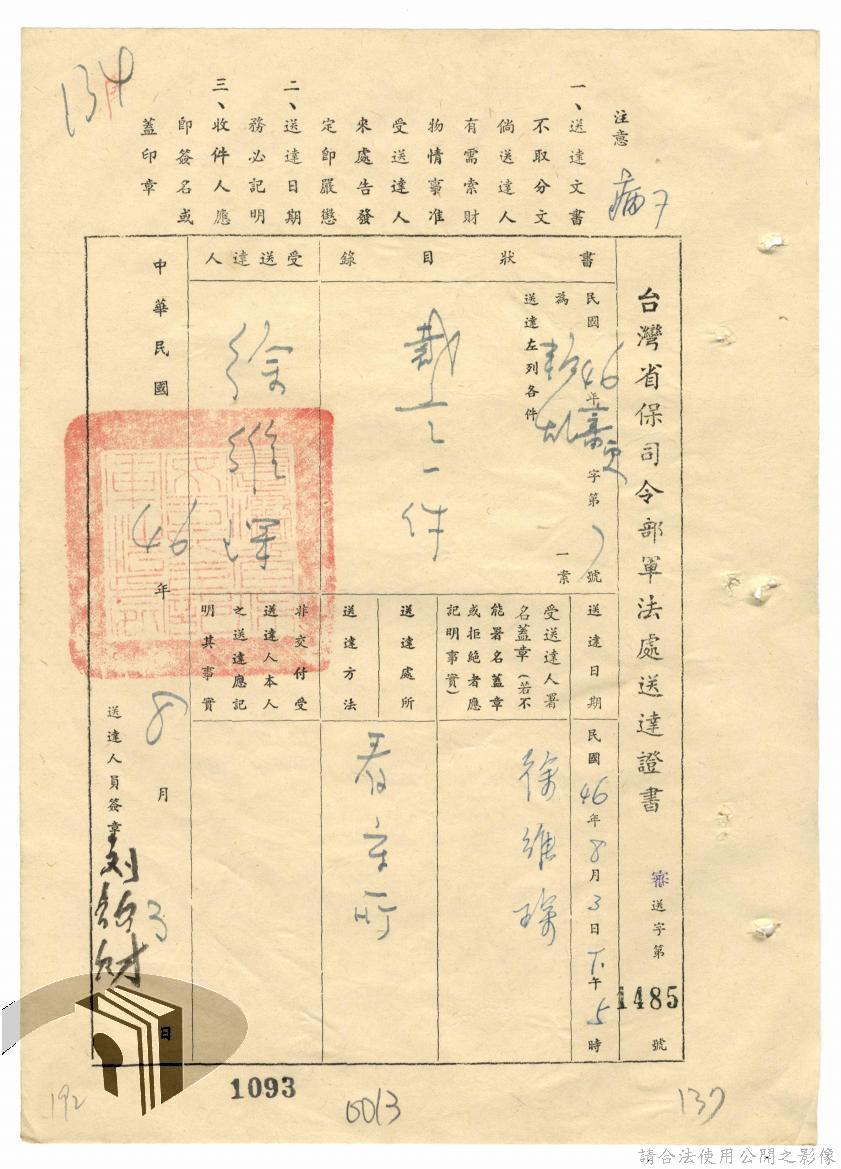 134
病7
注意
一、送達文書
不取分文
倘送達人
有需索財
物情事准
受送達人
來處告發
定即嚴懲
二、送達日期
務必記明
三、收件人應
即簽名或
蓋印章
台灣省保司令部軍法處送達證書
審送字第1485號
書狀目錄
民國46年 字第 號
為 一案
送達左列各件
裁定一件
受送達人
徐維琛
送達日期
民國46年8月3日下午5時
受送達人署
名蓋章(若不
能署名蓋章
或拒絕者應
記明事實)
徐維琛
送達處所
看守所
送達方法
非交付受
送達人本人
之送達應記
明其事實
中華民國46年8月3日
送達人員簽章
1093
0013
192
137
請合法使用公開之影像